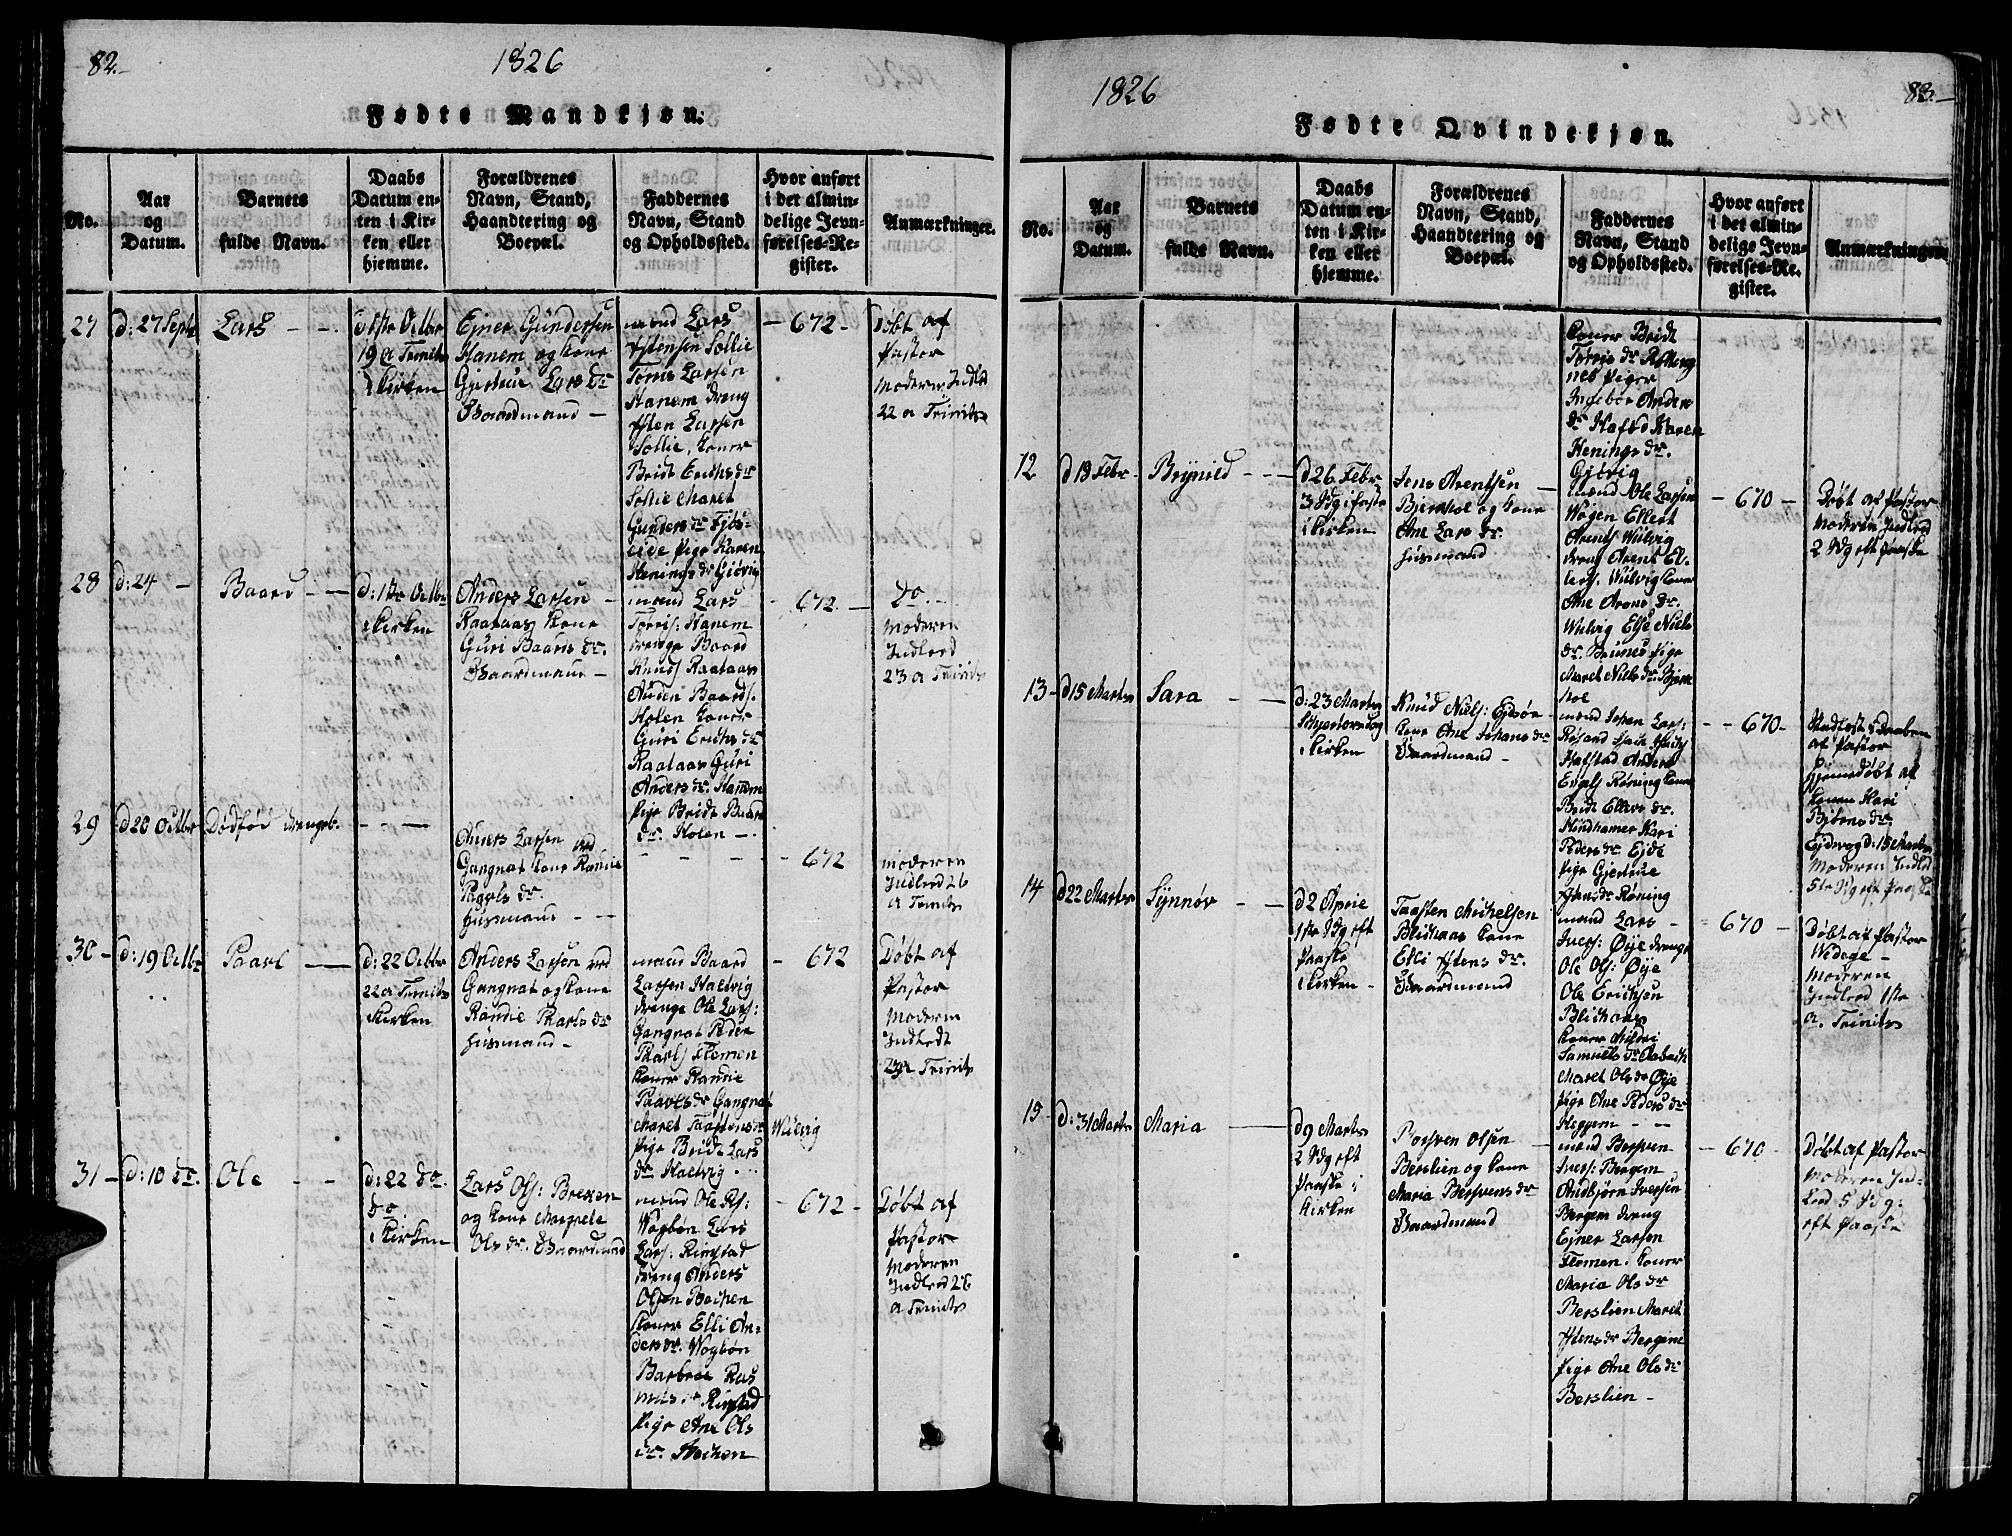 82.
1826
Fødte Mandkjøn.
No.
Aar
og
Datum.
Barnets
fulde Navn.
Daabs
Datum en-
ten i Kir-
ken eller
hjemme.
Forældrenes
Navn, Stand,
Haandtering og
Boepæl.
Faddernes
Navn, Stand
og Opholdssted.
Hvor anført
i det almin-
delige Jevn-
førelses-Re-
gister.
Anmærkninger.
27
d: 27 Septr
Lars
19 a Trinits
i Kirken
Ejner Gundersen
Hanem og Kone
Gjertrue Lars dr
Gaardmand
mand Lars
Ystensen Sollie
Tørris Larsen
Hanem dreng
Ysten Larsen
Sollie, Koner
Bridt Erichs dr
Sollie Maret
Gunders dr Fjøs-
eide Pige Karen
Henings dr Giøvig
672
Døbt af
Pastor
Moderen Indled
22 a Trinits
28
d: 24
Baard
d: 1ste Octbr
i Kirken
Anders Larsen
Raataas Kone
Guri Baards dr.
Gaardmand
mand Lars
Torris: Hanem
drenge Baard
Knuds Raataas
Anders Baards.
Holen Koner
Guri Erichs dr
Raataas Guri
Anders dr. Hanem
Pige Bridt Baard
dr. Holen
672
Do.
Moderen
Indled
23 a Trinits
29
d 20 Octbr
Dødfød drengeb.
Anders Larsen ved
Gangnat Kone Randie
Pavels dr.
Husmand
672
moderen
Indled 26
a Trinits
30
d: 19 Octbr
Paavl
d: 22 Octbr
22 a Trinits
i Kirken
Anders Larsen ved
Gangnat og Kone
Randie Paavls dr
Husmand
mand Baard
Larsen Halvig
drenge Ole Lars:
Gangnat Peder
Paavls Flemen
Koner Randie
Paavels dr Gangnat
Maret Taastens dr Wulvig
Pige Bridt Lars
dr Halvig
672
Døbt af
Pastor
Moderen
Indledt
23 a Trinits
31
d: 10 dr.
Ole
d: 22 dr.
do.
i Kirken
Lars Ols: Brekken
og Kone Magrete
Ols dr. Gaardmand
mand Ole Rs:
Wogbøn Lars
Lars: Ringstad
dreng Anders
Olsen Bechen
Koner Elli An-
ders dr. Wogbøn
Barbroe Ras
mus dr Ringstad
Pige Ane Ols
dr. Bechen
672
Døbt af
Pastor
Moderen
Indled 26
a Trinits
1826
83.
Fødte Qvindekjøn.
No.
Aar
og
Datum.
Barnets
fulde Navn.
Daabs
Datum en-
ten i Kir-
ken eller
hjemme.
Forældrenes
Navn, Stand,
Haandtering og
Boepæl.
Faddernes
Navn, Stand
og Opholdssted.
Hvor anført
i det almin-
delige Jevn-
førelses-Re-
gister.
Anmærkninger
Koner Bridt
Tørris dr
nes Piger
Ingebor Anders
dr Hafstd Karen
Henings dr.
Gjøvig
12
d 13 Febr
Brynild
d 26 Febr
3 Sdg i faste
i Kirken
Jens Arentsen
Bjerkhol og Kone
Ane Lars dr.
Husmand
mand Ole Larsen
Wogen Ellert
Arents Wulvig
dreng Arent El-
lers. Wulvig Koner
Ane Arens dr.
Wulvig Else Niels
dr. Brunes Pige
Maret Niels dr. Bjerk
hol
670
Døbt af Pastor
Moderen Indled
2 Sdg eft Paaske
13
d 15 Marts
Sara
d: 23 Marts
Skjertorsdag
i Kirken
Knud Niels: Ejdsøe
Kone Ane Johans dr
Gaardmand
mand Johan Lars:
Røsand
Hafstad Anders
Engels Røning Koner
Bridt Ellers dr.
Kindhamer Kari
Peders dr Ejde
Pige Gjertrue
Røning
670
Stadfæst i Daaben
af Pastor
Hjemmedøbt af
Konen Kari
Ejdevog d: 15 Marts
Moderen Indled
5te Sdg eft Paaske
14
d 22 Marts
Synnøv
d 2 Aprie
1ste Sdg eft
Paaske
i Kirken
Taasten Michelsen
Blichaas Kone
Elli Ystens dr.
Gaardmand
mand Lars
Ivers: Øije drenge
Ole Ols: Øije
Ole Erichsen
Blichaas
Koner Mildri
Samuels dr Aabach
Maret Ols dr Øije
Pige Ane Peders dr
Heggem
670
Døbt af Pastor
Wedege
Moderen
Indled 1ste
a. Trinits
15
d: 31 Marts
Maria
d 9 Marts
2 Sdg eft
Paaske i
Kirken
Bersven Olsen
Berslien og Kone
Maria Bersvens dr
Gaardmand
mand Bersven
Ivers: Bergem
Andbjørn Iversen
Bergem dreng
Ejner Larsen
Flemen. Koner
Maria Ols dr
Berslien Maret
Ystens dr Bergem
Pige Ane Ols dr
Berslien
670
Døbt af Pastor
Moderen Ind-
led 5 Sdg:
eft Paaske